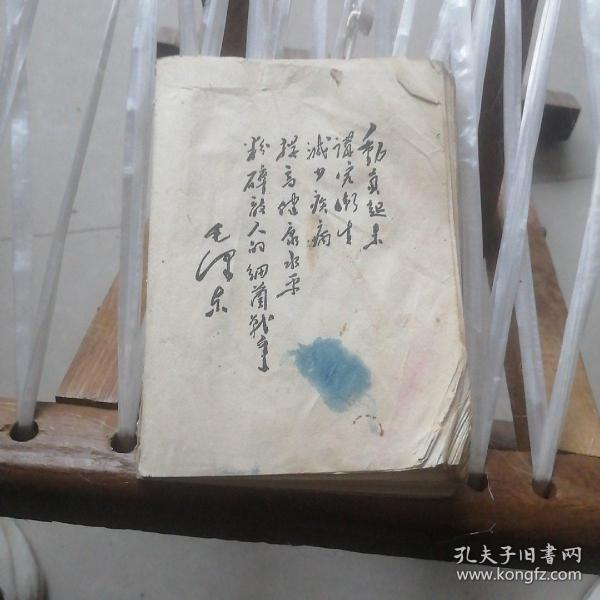 動員起来
講究衛生
减少疾病
提高健康水平
粉碎敌人的細菌战争
毛澤东
孔夫子旧書网
www.kongfz.com